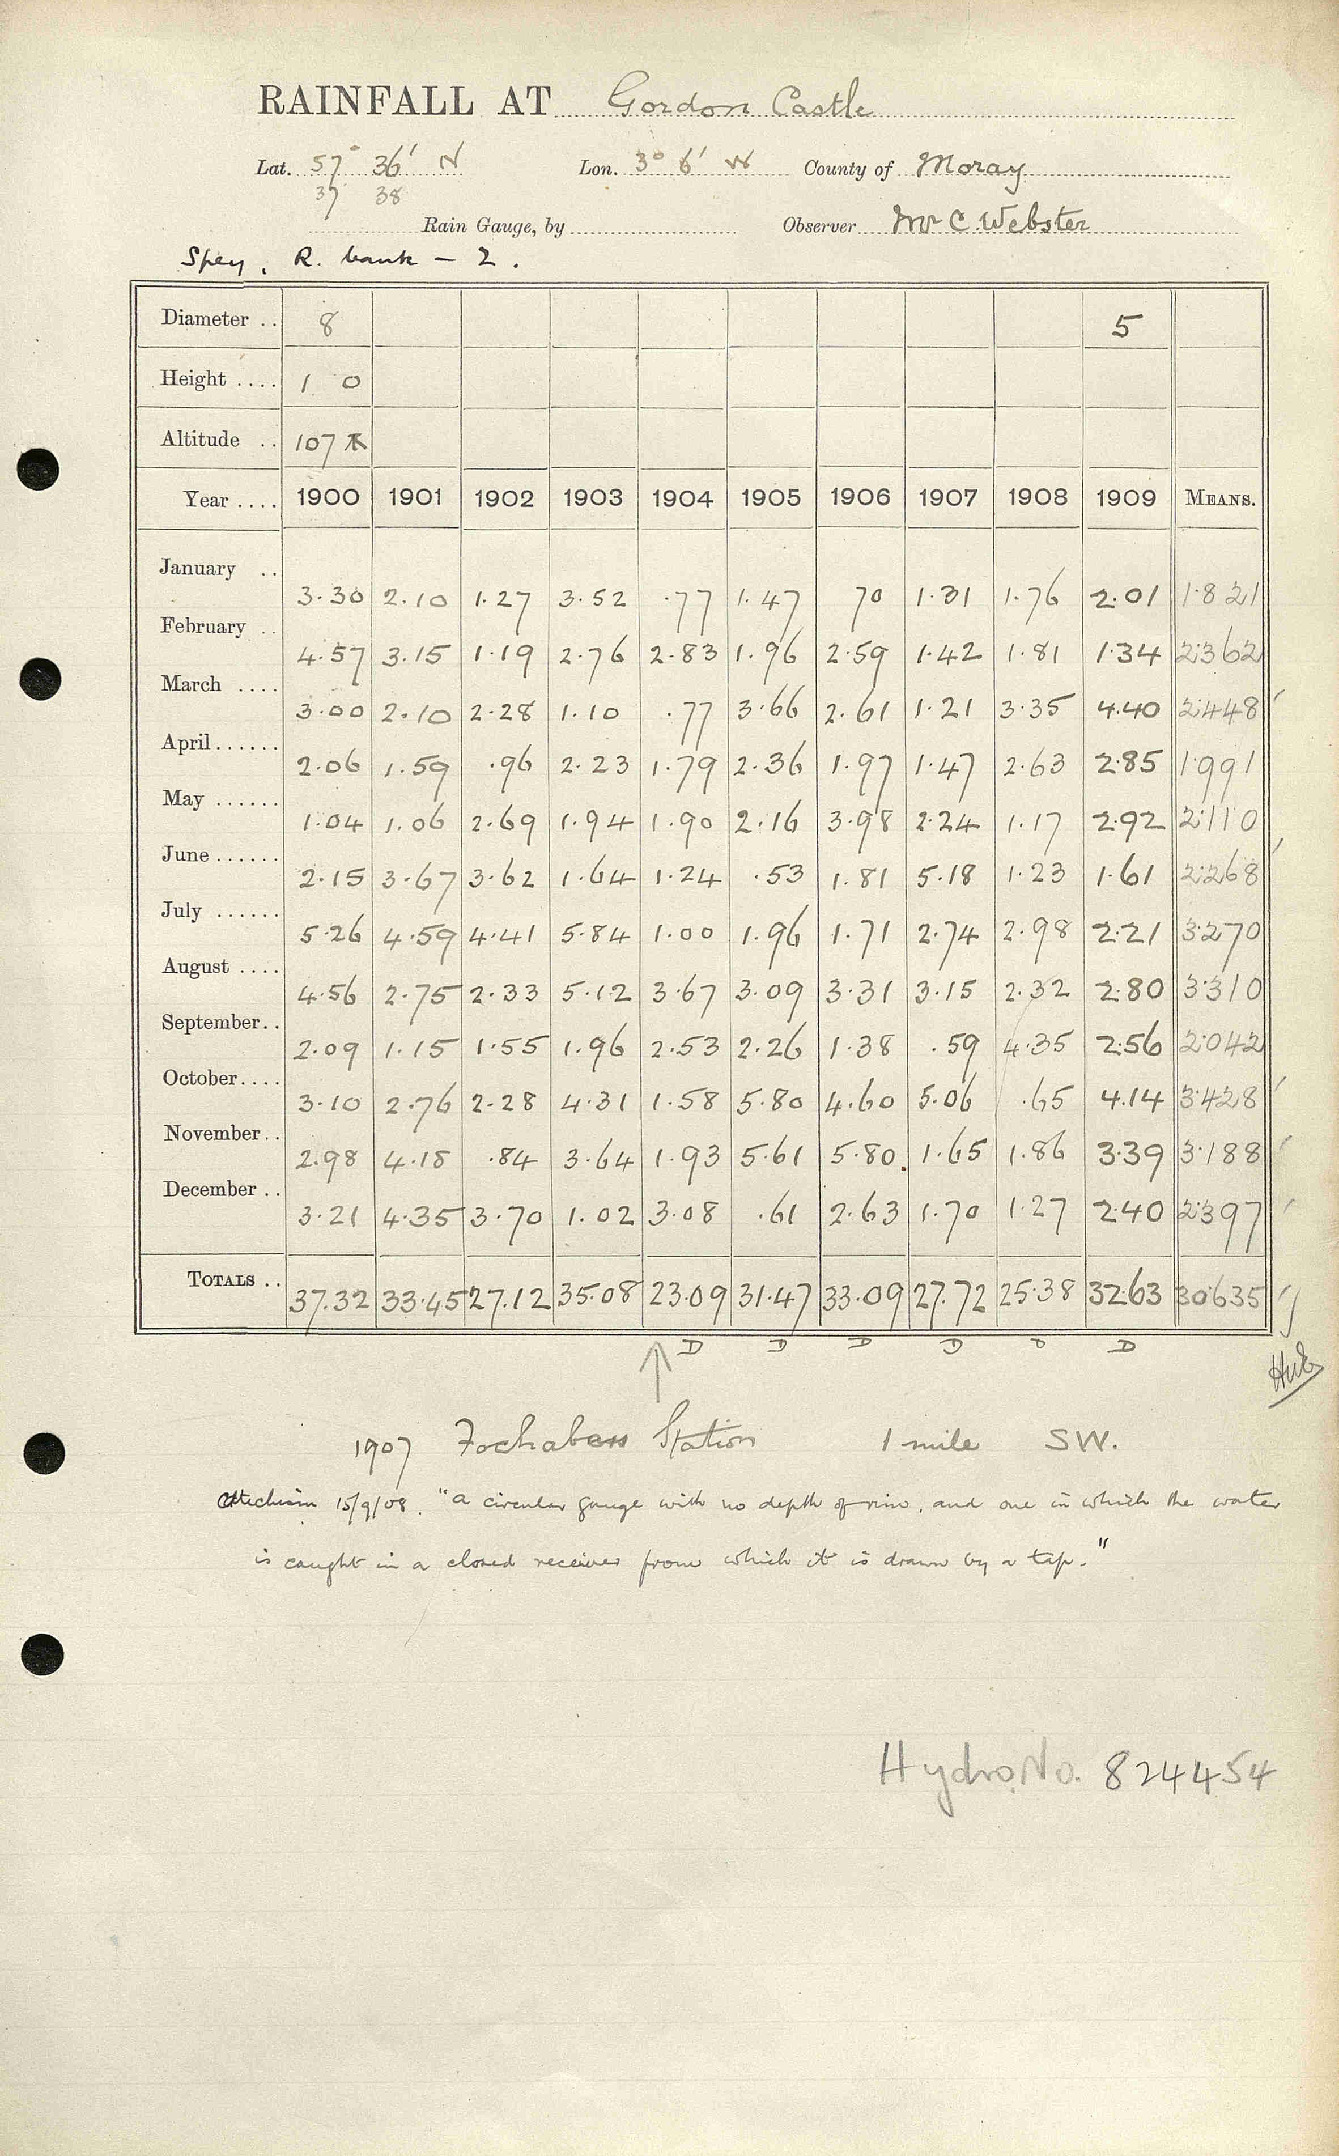 RAINFALL AT Gordon Castle
Lat. 57° 36' N Lon. 3° 6' W County of Moray
37 38
Rain Gauge, by Observer Mr C. Webster
Spey, R. bank - 2.
Diameter .. 8 5
Height .... 1 0
Altitude .. 107
Year .... 1900 1901 1902 1903 1904 1905 1906 1907 1908 1909 MEANS.
January .. 3.30 2.10 1.27 3.52 .77 1.47 70 1.31 1.76 2.01 1.821
February .. 4.57 3.15 1.19 2.76 2.83 1.96 2.59 1.42 1.81 1.34 2.362
March .... 3.00 2.10 2.28 1.10 .77 3.66 2.61 1.21 3.35 4.40 2.448
April...... 2.06 1.59 .96 2.23 1.79 2.36 1.97 1.47 2.63 2.85 1.991
May ...... 1.04 1.06 2.69 1.94 1.90 2.16 3.98 2.24 1.17 2.92 2.110
June...... 2.15 3.67 3.62 1.64 1.24 .53 1.81 5.18 1.23 1.61 2.268
July ...... 5.26 4.59 4.41 5.84 1.00 1.96 1.71 2.74 2.98 2.21 3.270
August .... 4.56 2.75 2.33 5.12 3.67 3.09 3.31 3.15 2.32 2.80 3.310
September.. 2.09 1.15 1.55 1.96 2.53 2.26 1.38 .59 4.35 2.56 2.042
October.... 3.10 2.76 2.28 4.31 1.58 5.80 4.60 5.06 .65 4.14 3.428
November.. 2.98 4.18 .84 3.64 1.93 5.61 5.80 1.65 1.86 3.39 3.188
December .. 3.21 4.35 3.70 1.02 3.08 .61 2.63 1.70 1.27 2.40 2.397
TOTALS .. 37.32 33.45 27.12 35.08 23.09 31.47 33.09 27.72 25.38 32.63 30.635
D D D D D D
1907 Fochabers Station 1 mile SW.
15/9/08. "a circular gauge with no depth of rim, and one in which the water
is caught in a closed receiver from which it is drawn by a tap."
Hydro. No. 824454